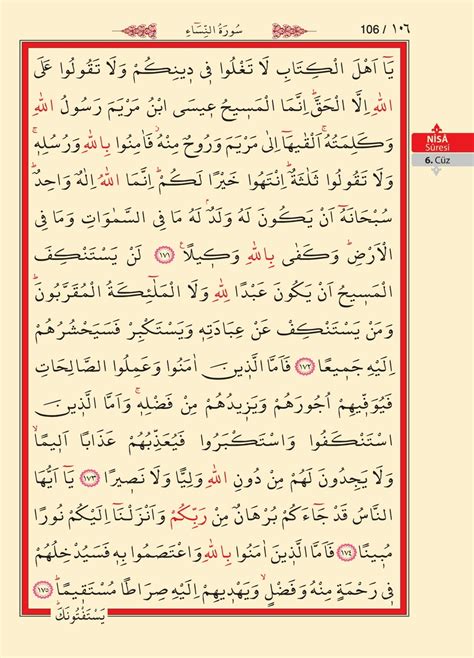 سُورَةُ النِّسَٓاءِ
106 / ١٠٦
NİSÂ
Sûresi
6. Cüz
يَٓا اَهْلَ الْكِتَابِ لَا تَغْلُوا ف۪ي د۪ينِكُمْ وَلَا تَقُولُوا عَلَى
اللّٰهِ اِلَّا الْحَقَّۜ اِنَّمَا الْمَس۪يحُ ع۪يسَى ابْنُ مَرْيَمَ رَسُولُ اللّٰهِ
وَكَلِمَتُهُۚ اَلْقٰيهَٓا اِلٰى مَرْيَمَ وَرُوحٌ مِنْهُۘ فَاٰمِنُوا بِاللّٰهِ وَرُسُلِه۪ۚ
وَلَا تَقُولُوا ثَلٰثَةٌۜ اِنْتَهُوا خَيْرًا لَكُمْۜ اِنَّمَا اللّٰهُ اِلٰهٌ وَاحِدٌۜ
سُبْحَانَهُٓ اَنْ يَكُونَ لَهُ وَلَدٌۘ لَهُ مَا فِي السَّمٰوَاتِ وَمَا فِي
الْاَرْضِۜ وَكَفٰى بِاللّٰهِ وَك۪يلًا۟ ﴿١٧١﴾ لَنْ يَسْتَنْكِفَ
الْمَس۪يحُ اَنْ يَكُونَ عَبْدًا لِلّٰهِ وَلَا الْمَلٰٓئِكَةُ الْمُقَرَّبُونَۜ
وَمَنْ يَسْتَنْكِفْ عَنْ عِبَادَتِه۪ وَيَسْتَكْبِرْ فَسَيَحْشُرُهُمْ
اِلَيْهِ جَم۪يعًا ﴿١٧٢﴾ فَاَمَّا الَّذ۪ينَ اٰمَنُوا وَعَمِلُوا الصَّالِحَاتِ
فَيُوَفّ۪يهِمْ اُجُورَهُمْ وَيَز۪يدُهُمْ مِنْ فَضْلِه۪ۚ وَاَمَّا الَّذ۪ينَ
اسْتَنْكَفُوا وَاسْتَكْبَرُوا فَيُعَذِّبُهُمْ عَذَابًا اَل۪يمًاۙ
وَلَا يَجِدُونَ لَهُمْ مِنْ دُونِ اللّٰهِ وَلِيًّا وَلَا نَص۪يرًا ﴿١٧٣﴾ يَٓا اَيُّهَا
النَّاسُ قَدْ جَٓاءَكُمْ بُرْهَانٌ مِنْ رَبِّكُمْ وَاَنْزَلْنَٓا اِلَيْكُمْ نُورًا
مُب۪ينًا ﴿١٧٤﴾ فَاَمَّا الَّذ۪ينَ اٰمَنُوا بِاللّٰهِ وَاعْتَصَمُوا بِه۪ فَسَيُدْخِلُهُمْ
ف۪ي رَحْمَةٍ مِنْهُ وَفَضْلٍۙ وَيَهْد۪يهِمْ اِلَيْهِ صِرَاطًا مُسْتَق۪يمًاۜ ﴿١٧٥﴾
يَسْتَفْتُونَكَۜ